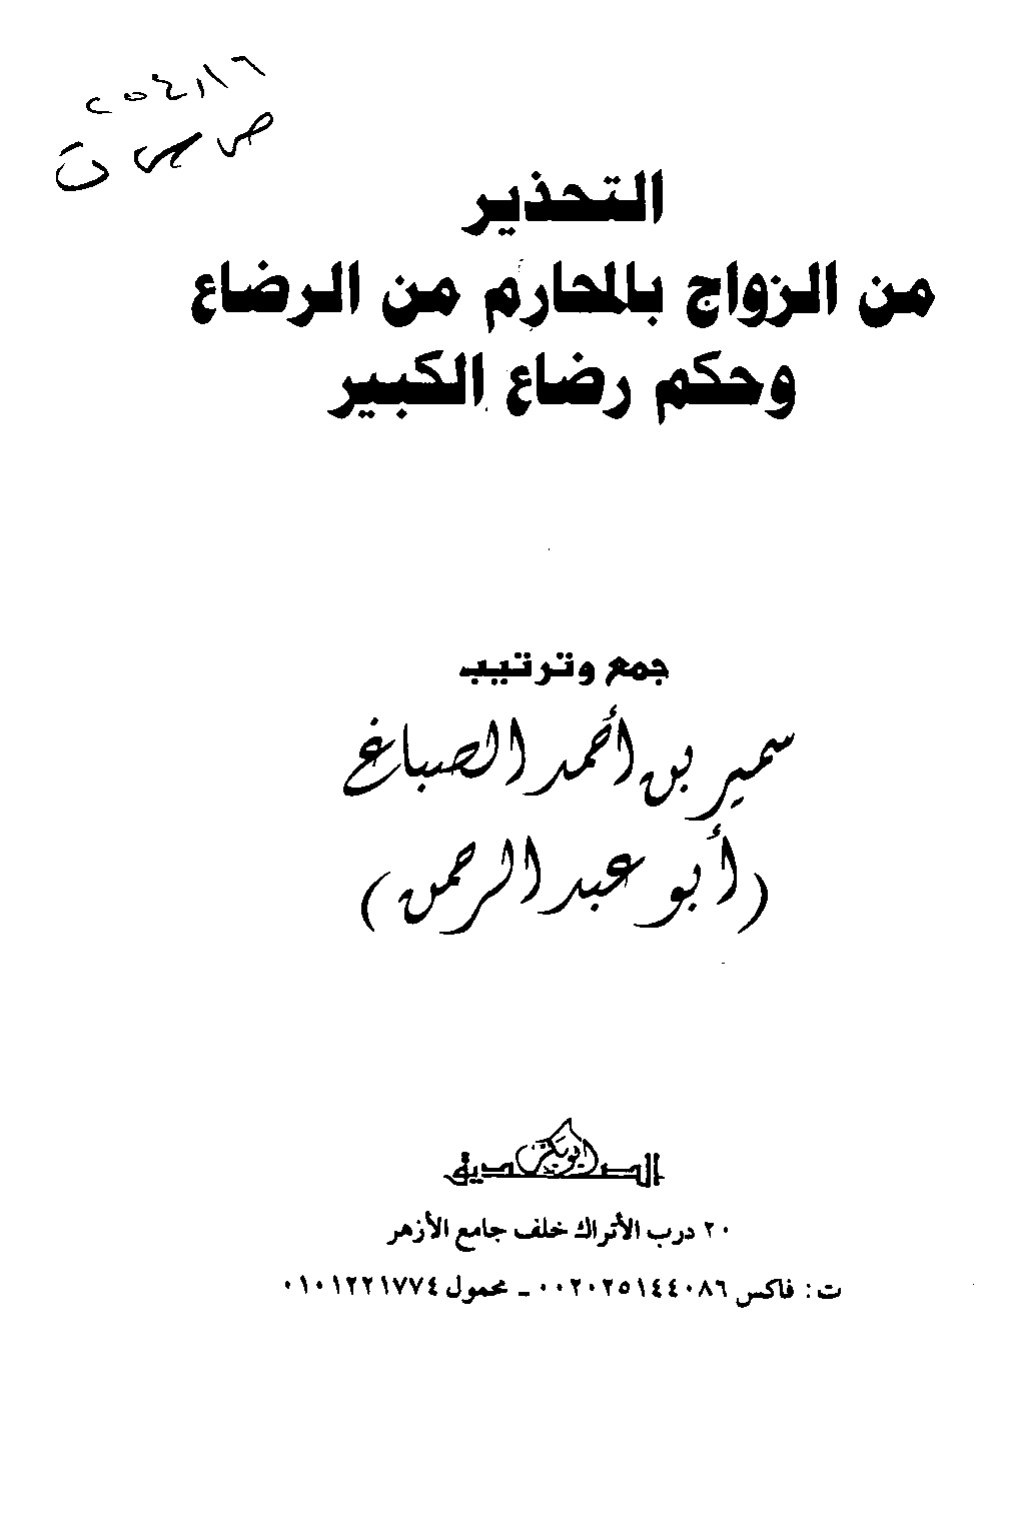 التحذير
من الزواج بالمحارم من الرضاع
وحكم رضاع الكبير
جمع وترتيب
سمير بن أحمد الصباغ
(أبو عبد الرحمن)
أبو بكر الصديق
٢٠ درب الأتراك خلف جامع الأزهر
ت : فاكس ٠٠٢٠٢٥١٤٤٠٨٦ ـ محمول ٠١٠١٢٢١٧٧٤